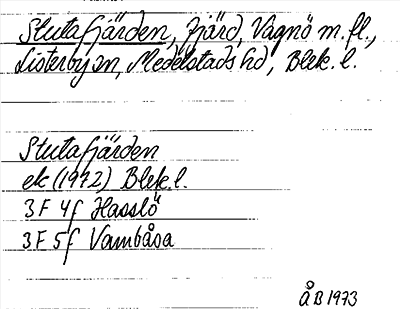 Stutafjärden, Fjärd, Vagnö m.fl.,
Listerby sn, Medelstads hd, Blek. l.
Stutafjärden
ek (1972) Blek. l.
3 F 4f Hasslö
3 F 5f Vambåsa
ÅB 1973